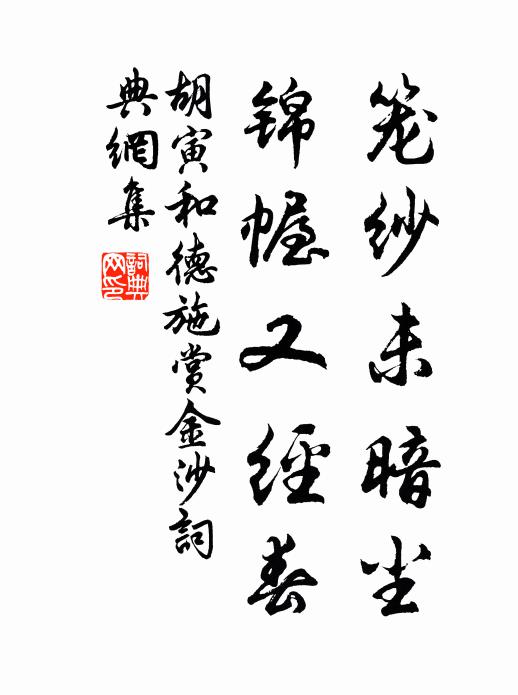 笼纱未暗尘
锦幄又經春
胡寅和德施赏金沙詞
典網集
詞典
网印